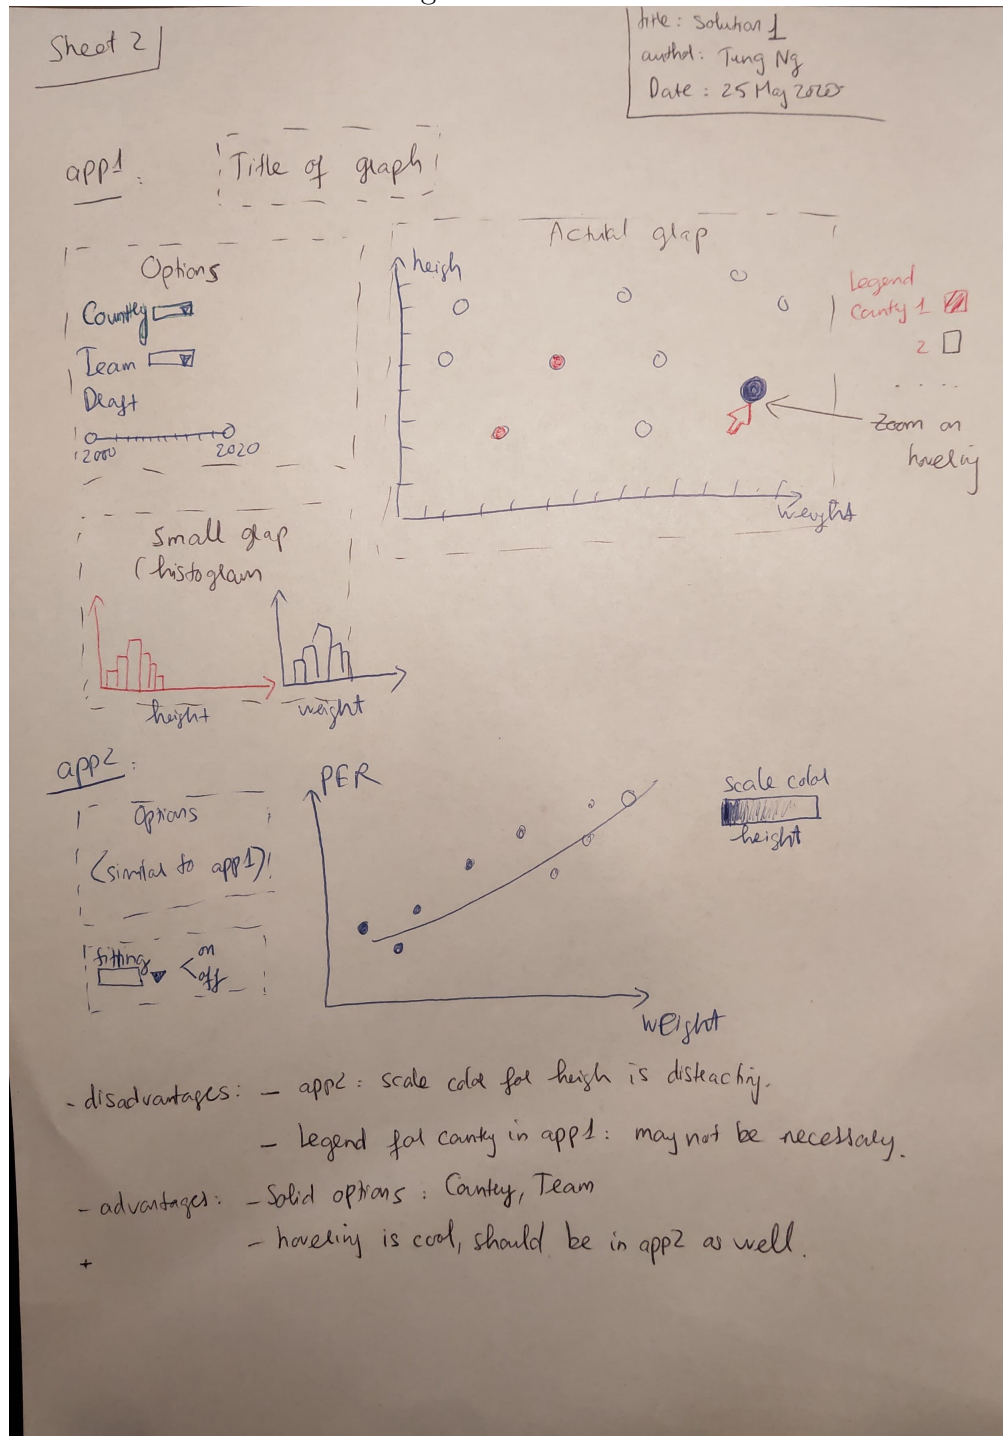 Sheet 2
title : Solution 1
author : Tung Ng
Date : 25 May 2020
app1 :
Title of graph
Options
Country
Team
Draft
2000 2020
Actual glap
heigh
weight
Legend
County 1
2
. . . .
Zoom on
hovering
Small glap
(histogram
height
weight
app2 :
Options
(similar to app1)
fitting
on
off
PER
weight
scale color
height
- disadvantages : - app2 : scale color for heigh is distracting.
- Legend for county in app1 : may not be necessary.
- advantages : - Solid options : Country, Team
- hovering is cool, should be in app2 as well.
+